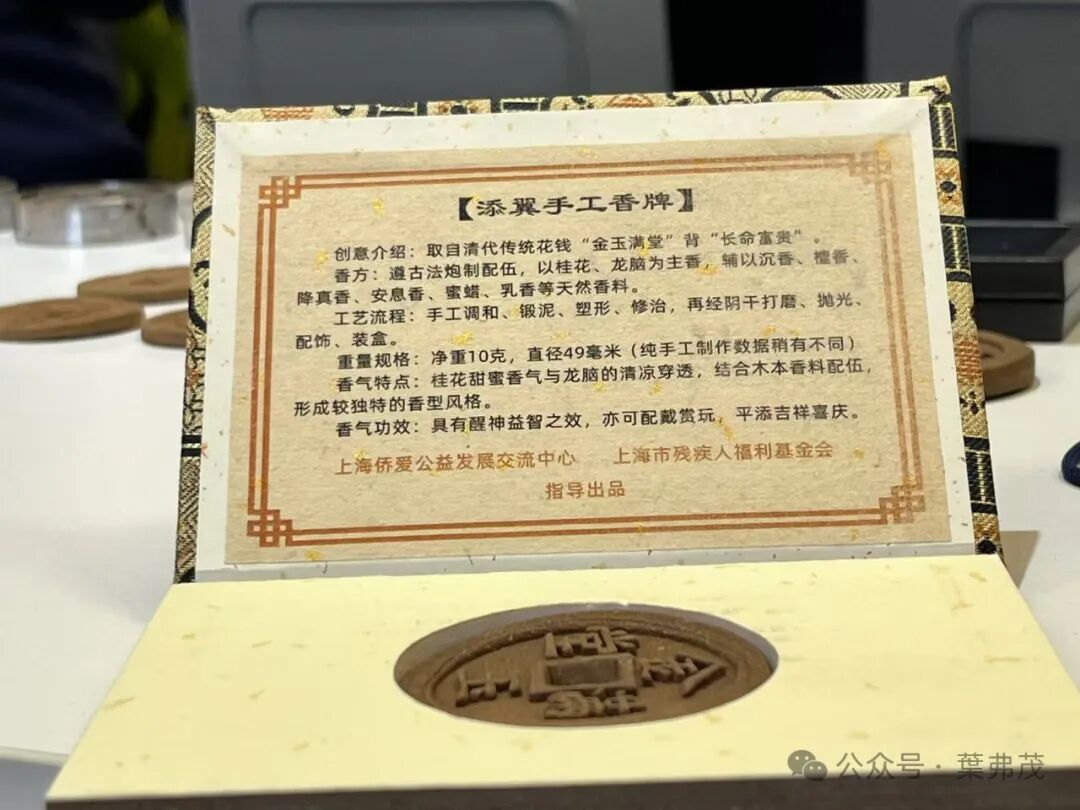 【添翼手工香牌】
创意介绍：取自清代传统花钱“金玉满堂”背“长命富贵”。
香方：遵古法炮制配伍，以桂花、龙脑为主香，辅以沉香、檀香、
降真香、安息香、蜜蜡、乳香等天然香料。
工艺流程：手工调和、锻泥、塑形、修治，再经阴干打磨、抛光、
配饰、装盒。
重量规格：净重10克，直径49毫米（纯手工制作数据稍有不同）
香气特点：桂花甜蜜香气与龙脑的清凉穿透，结合木本香料配伍，
形成较独特的香型风格。
香气功效：具有醒神益智之效，亦可配戴赏玩，平添吉祥喜庆。
上海侨爱公益发展交流中心 上海市残疾人福利基金会
指导出品
金玉满堂
公众号·葉弗茂